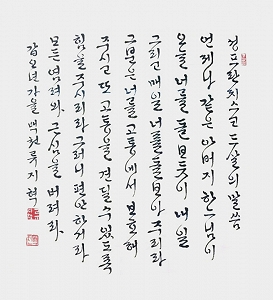 성프란치스코 드 살의 말씀
언제나 같은 아버지 하느님이
오늘 너를 돌보듯이 내일
그리고 매일 너를 돌보아주리라
그분은 너를 고통에서 보호해
주시고 또 고통을 견딜 수 있도록
힘을 주시리라 그러니 편안하여라
모든 염려와 근심을 버려라
갑오년 가을 백천 류지혁